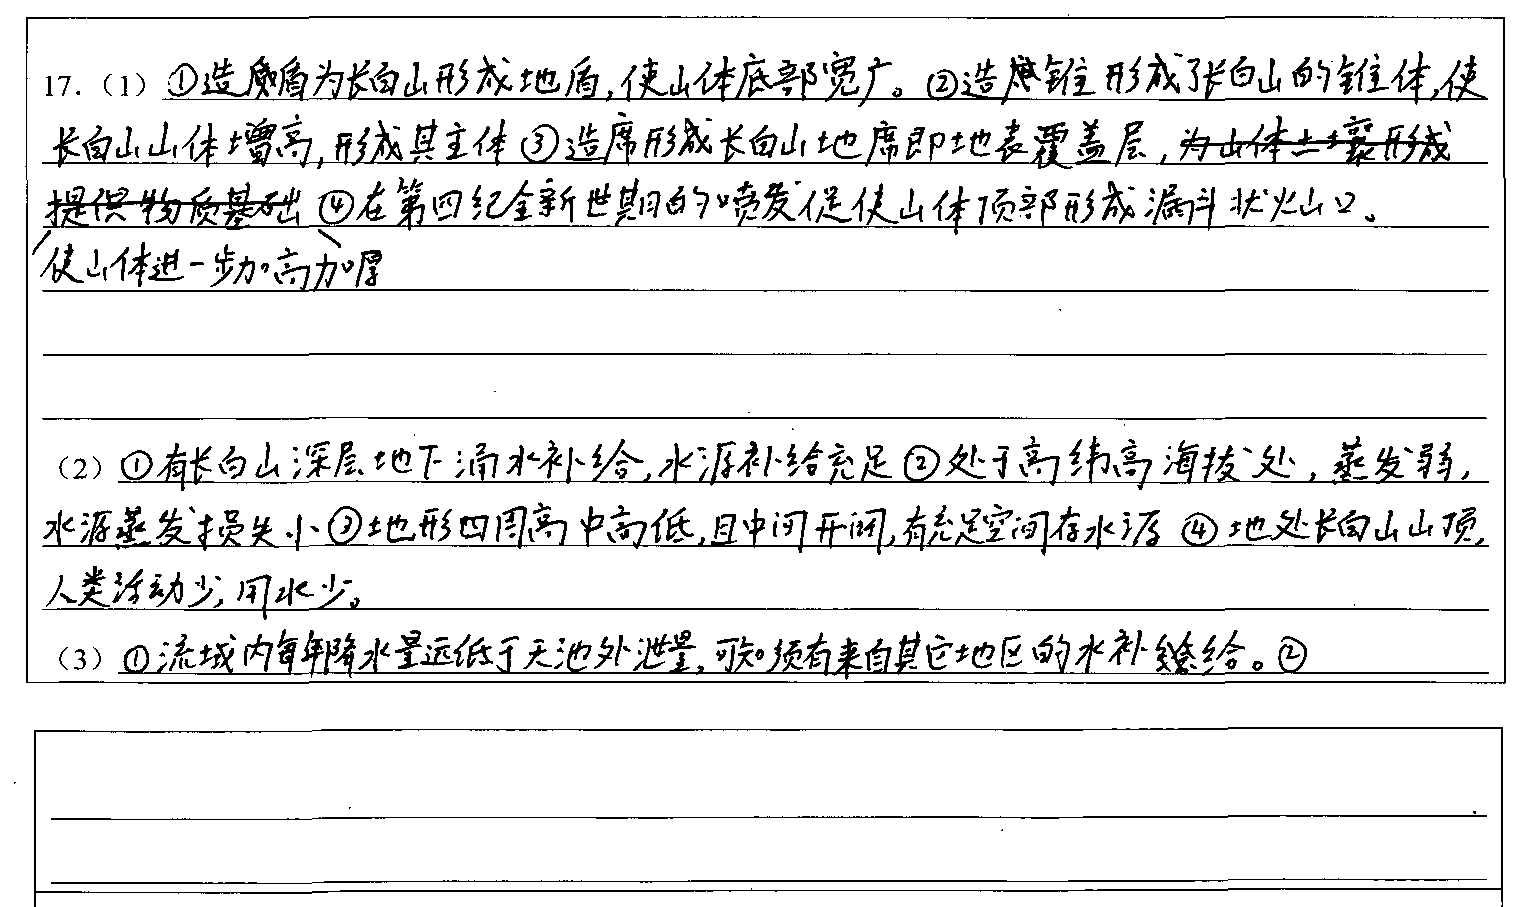 17.（1）①造盾为长白山形成地盾,使山体底部宽广。②造锥形成了长白山的锥体,使
长白山山体增高,形成其主体③造席形成长白山地席即地表覆盖层,为山体土壤形成
提供物质基础④在第四纪全新世期的喷发促使山体顶部形成漏斗状火山口。
使山体进一步加高加厚
（2）①有长白山深层地下涌水补给,水源补给充足②处于高纬高海拔处,蒸发弱,
水源蒸发损失小③地形四周高中间低,且中间开阔,有充足空间存水源④地处长白山山顶,
人类活动少,用水少。
（3）①流域内每年降水量远低于天池外泄量,可知须有来自其它地区的水补给。②